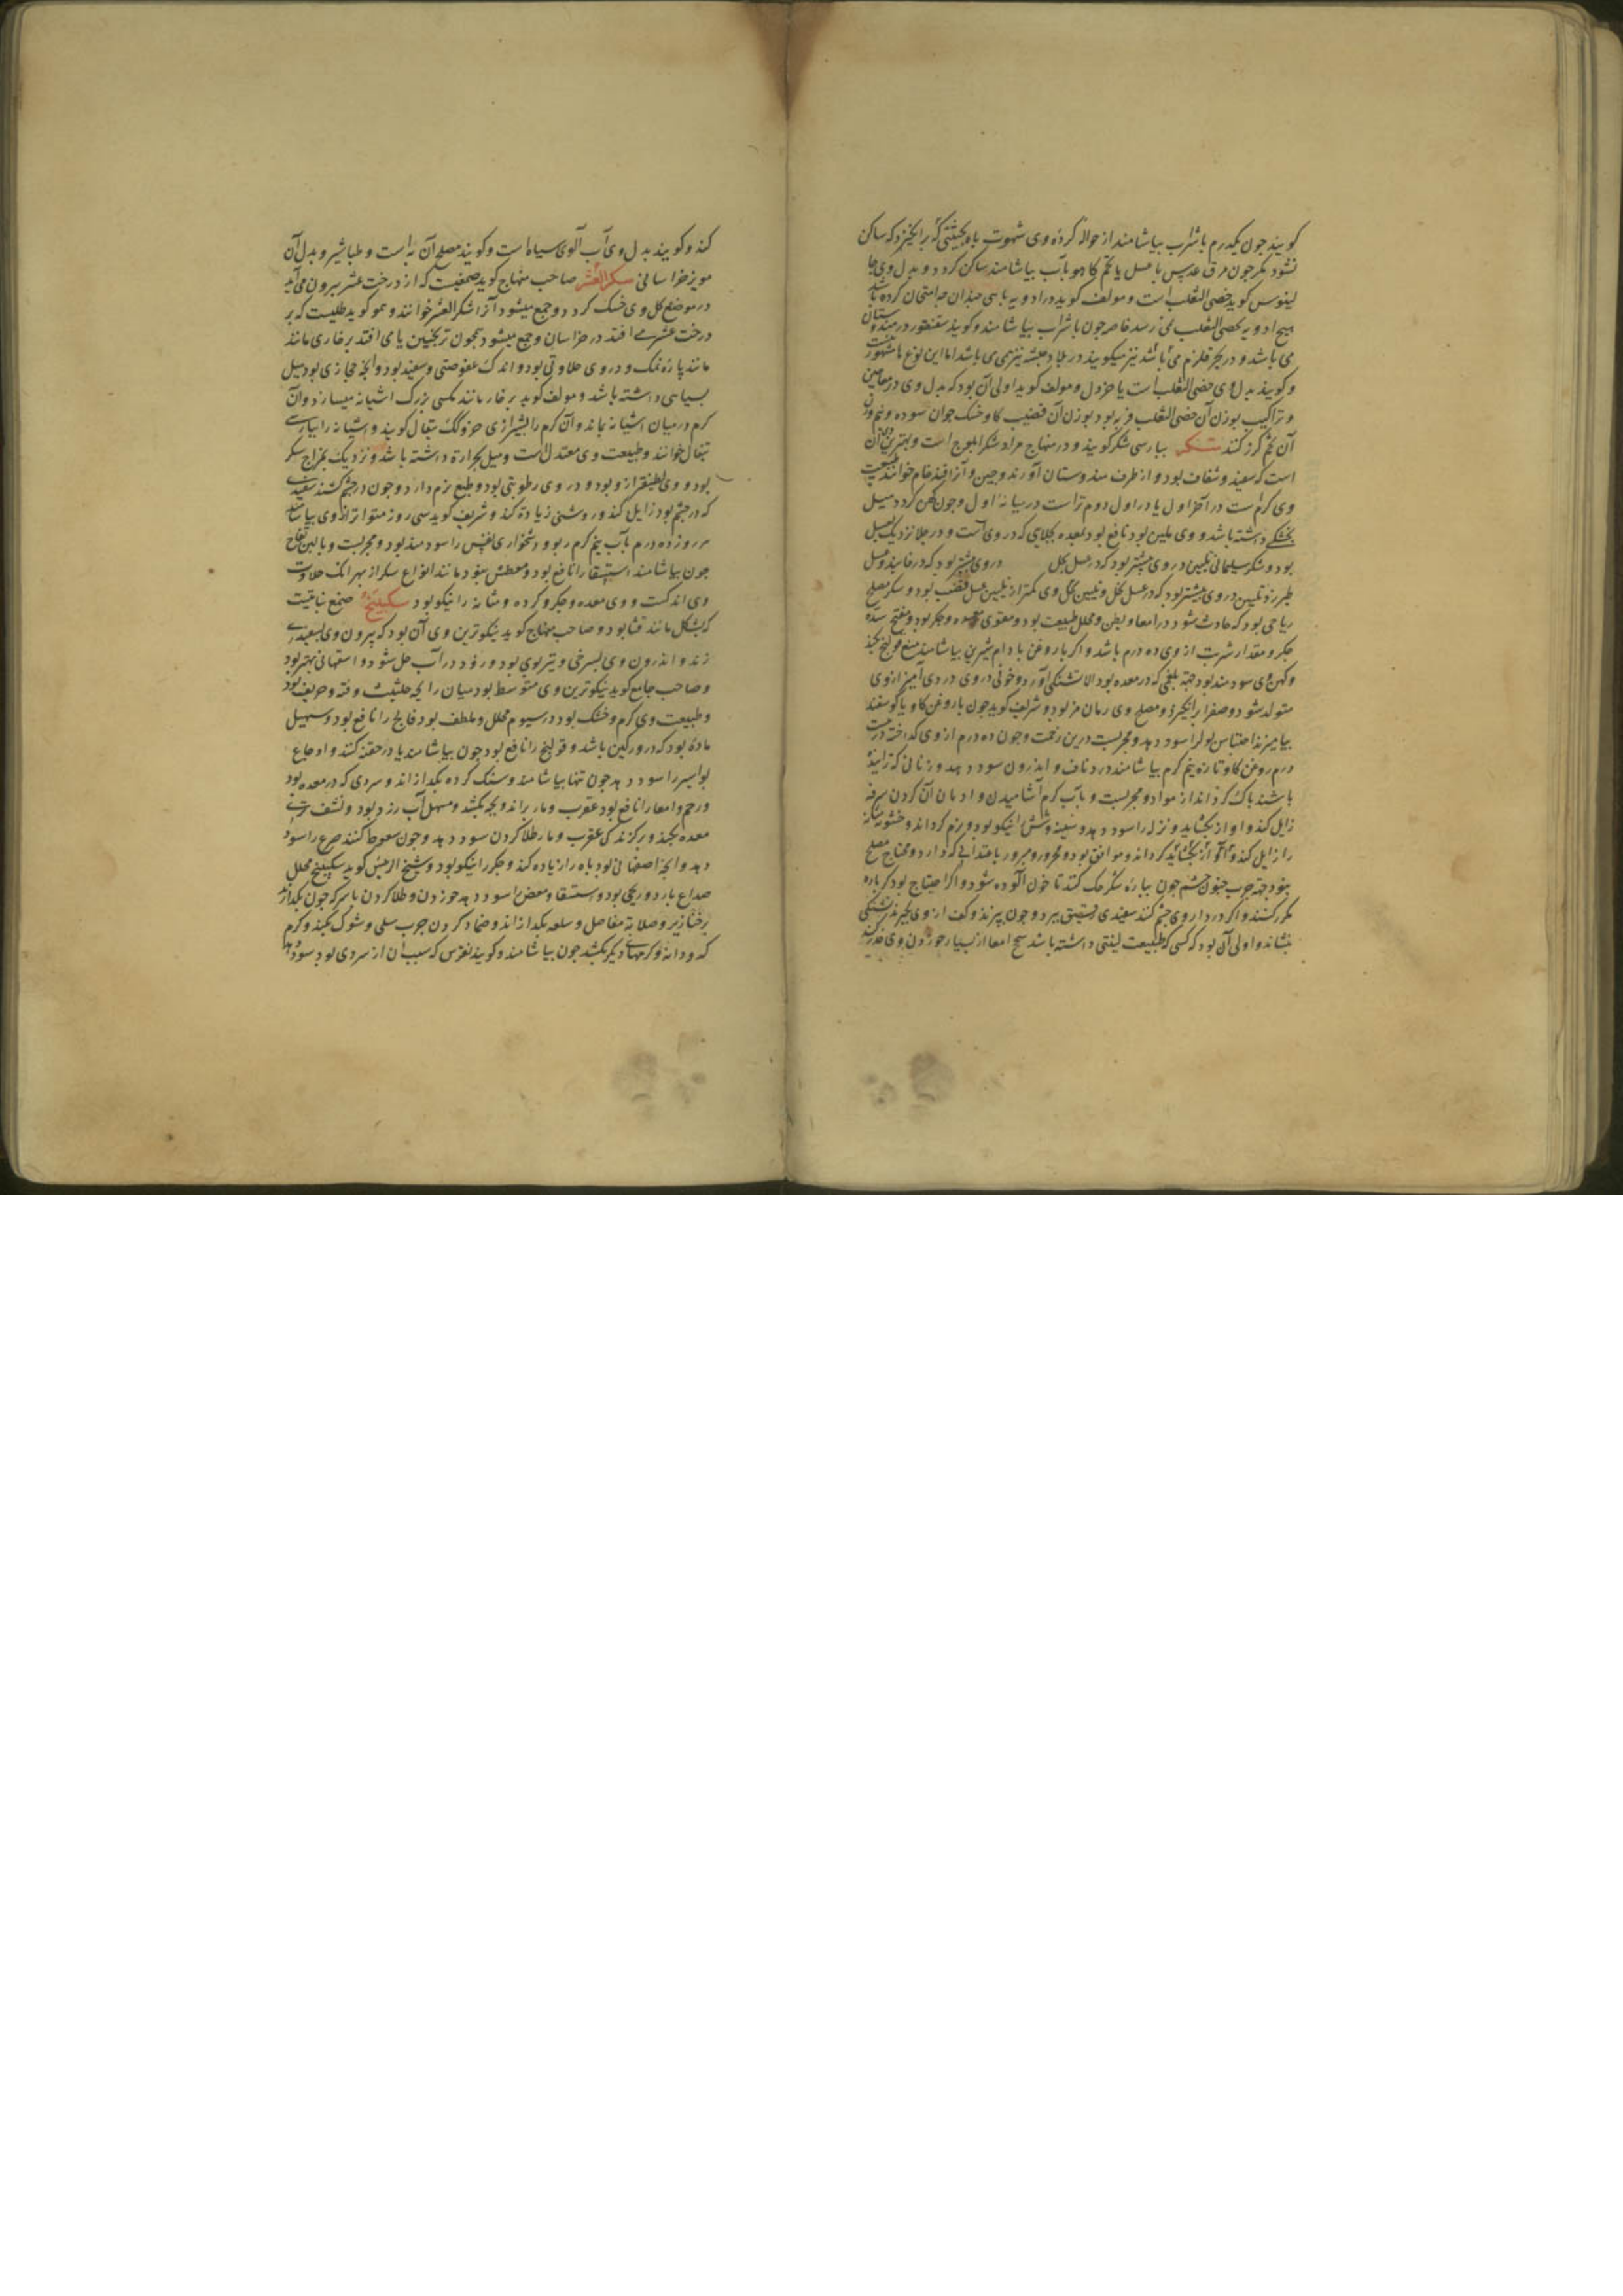 کویند چون یکدرم باشراب بیاشامند از حوالهٔ کرده وی شهوت باه بحیثیتی که برانکیزد که ساکن
نشود مکر چون مرق عدس با عسل یا تخم کاهو بآب بیاشامند ساکن کردد و بدل وی جا
لینوس کوید خصی الثعلب است و مولف کوید در ادویه باهی چندان که امتحان کرده شد
هیچ ادویه بخصی الثعلب نمی رسد خاصه چون باشراب بیاشامند و کویند سقنقور در هندوستان
می باشد و در بحر قلزم می باشد نیز میکویند در بلاد حبشه نیز می باشد اما این نوع مشهور نیست
و کویند بدل وی خصی الثعلب است یا خردل و مولف کوید اولی آن بود که بدل وی در معاجین
و تراکیب بوزن آن خصی الثعلب فربه بود بوزن آن قضیب کاو خشک جوان سوده و نیم وزن
آن تخم کزر کنند سکر بپارسی شکر کویند و در منهاج مراد شکر ابلوج است و بهترین آن
است که سفید و شفاف بود و از طرف هندوستان آورند و چین و آنرا قند خام خوانند طبیعت
وی کرم است در آخر اول یا در اول دوم تر است در میانه اول و چون کهن کردد میل
بخشکی داشته باشد و وی ملین بود نافع بود معده بجلایی که در وی است و در جلا نزدیک بعسل
بود و شکر سلیمانی تلیین در وی بیشتر بود که در عسل نحل در وی بیشتر بود که در فانید و عسل
طبرزد تلیین در وی بیشتر بود که در عسل نحل و تلیین نحل وی کمتر از تلیین عسل قصب بود و سکر مصلح
ریاحی بود که حادث شود در امعا و بطن و محلل طبیعت بود و مقوی معده و جکر بود و مفتح سده
جکر و مقدار شربت از وی ده درم باشد و اکر با روغن بادام شیرین بیاشامند منع قولنج بکند
و کهن وی سودمند بود جهة بلغمی که در معده بود الا تشنکی آورد و خونی در وی دردی آمیز از وی
متولد شود و صفرا برانکیزد و مصلح وی رمان مز بود و شریف کوید چون با روغن کاو یا کوسفند
بیامیزند احتباس بول را سود دهد و مجربست درین زحمت و چون ده درم از وی کداخته در بیست
درم روغن کاو تازه نیم کرم بیاشامند درد ناف و اندرون سود دهد و زنانی که زاینده
باشند پاک کرداند از مواد و مجربست و بآب کرم آشامیدن و ادمان آن کردن سرفه
زایل کند و آواز بکشاید و نزله را سود دهد و سینه و شش را نیکو بود و نرم کرداند و خشونت مثانه
را زایل کند و آواز بکشاید کرداند و موافق بود و محرور و مبرور باعتدالی که دارد و محتاج مصلح
نبود جهة جرب جفون چشم چون بپاره شکر حک کنند تا خون آلوده شود و اکر احتیاج بود کرباره
مکرر کنند و اکر در داروی چشم کنند سفیدی رقیق ببرد و چون بپزند و کف از وی بکیرند تشنکی
بنشاند و اولی آن بود که کسی که طبیعت لینتی داشته باشد سحج امعا از بسیار خوردن وی حذر
کند و کویند بدل وی آب آلوی سیاه است و کویند مصلح آن به است و طباشیر و بدل آن
مویز خراسانی سکر العشر صاحب منهاج کوید صمغیست که از درخت عشر بیرون می آید
در موضع کل وی خشک کردد و جمع میشود آنرا شکر العشر خوانند و عمو کوید طلیست که بر
درخت عشر می افتد در خراسان و جمع میشود همچون ترنجبین یا می افتد بر خاری مانند
مانند پاره نمک و در وی حلاوتی بود و اندک عفوصتی و سفید بود و آنچه حجازی بود میل
بسیاهی داشته باشد و مولف کوید بر خار مانند مکسی بزرک آشیانه میسازد و آن
کرم در میان آشیانه بماند و آن کرم را بشیرازی خزوکک تیغال کویند و آشیانه را بپارسی
تیغال خوانند و طبیعت وی معتدل است و میل بحرارة داشته باشد و نزدیک بمزاج سکر
بود و وی لطیفتر از و بود و در وی رطوبتی بود و طبع نرم دارد و چون در چشم کشند سفیدی
که در چشم بود زایل کند و روشنی زیادة کند و شریف کوید سی روز متواتر از وی بیاشامند
هر روز ده درم بآب نیم کرم ربو و دشخواری نفس را سودمند بود و مجربست و با لبن لقاح
چون بیاشامند استسقا را نافع بود و معطش نبود مانند انواع سکر از بهر آنک حلاوت
وی اندکست و وی معده و جکر و کرده و مثانه را نیکو بود سکبینج صمغ نباتیست
که بشکل مانند قثا بود و صاحب منهاج کوید نیکوترین وی آن بود که بیرون وی بسفیدی
زند و اندرون وی بسرخی و تیزبوی بود و زود در آب حل شود و اصفهانی بهتر بود
و صاحب جامع کوید نیکوترین وی متوسط بود میان رایحه حلتیت و قنه و حریف بود
و طبیعت وی کرم و خشک بود در سیوم محلل و ملطف بود فالج را نافع بود و مسهل
مادة بود که در ورکین باشد و قولنج را نافع بود چون بیاشامند یا در حقنه کنند و اوجاع
بواسیر را سود دهد چون تنها بیاشامند و سنک کرده بکدازاند و سردی که در معده بود
و رحم و امعا را نافع بود عقرب و مار براند و بچه بکشد و مسهل آب زرد بود و نشف تری
معده بکند و بر کزندکی عقرب و مار طلا کردن سود دهد و چون سعوط کنند صرع را سود
دهد و آنچه اصفهانی بود باه را زیاده کند و جکر را نیکو بود و شیخ الرئیس کوید سکبینج محلل
صداع بارد و ریحی بود و استسقا و مغص را سود دهد خوردن و طلا کردن با سرکه چون بکدازند
بر خنازیر و صلابه مفاصل و سلعه بکدازاند و ضماد کردن جرب سلی و شوک بکند و کرم
کدودانه و کرمهای دیکر بکشد چون بیاشامند و کویند نقرس که سبب آن از سردی بود سود دهد